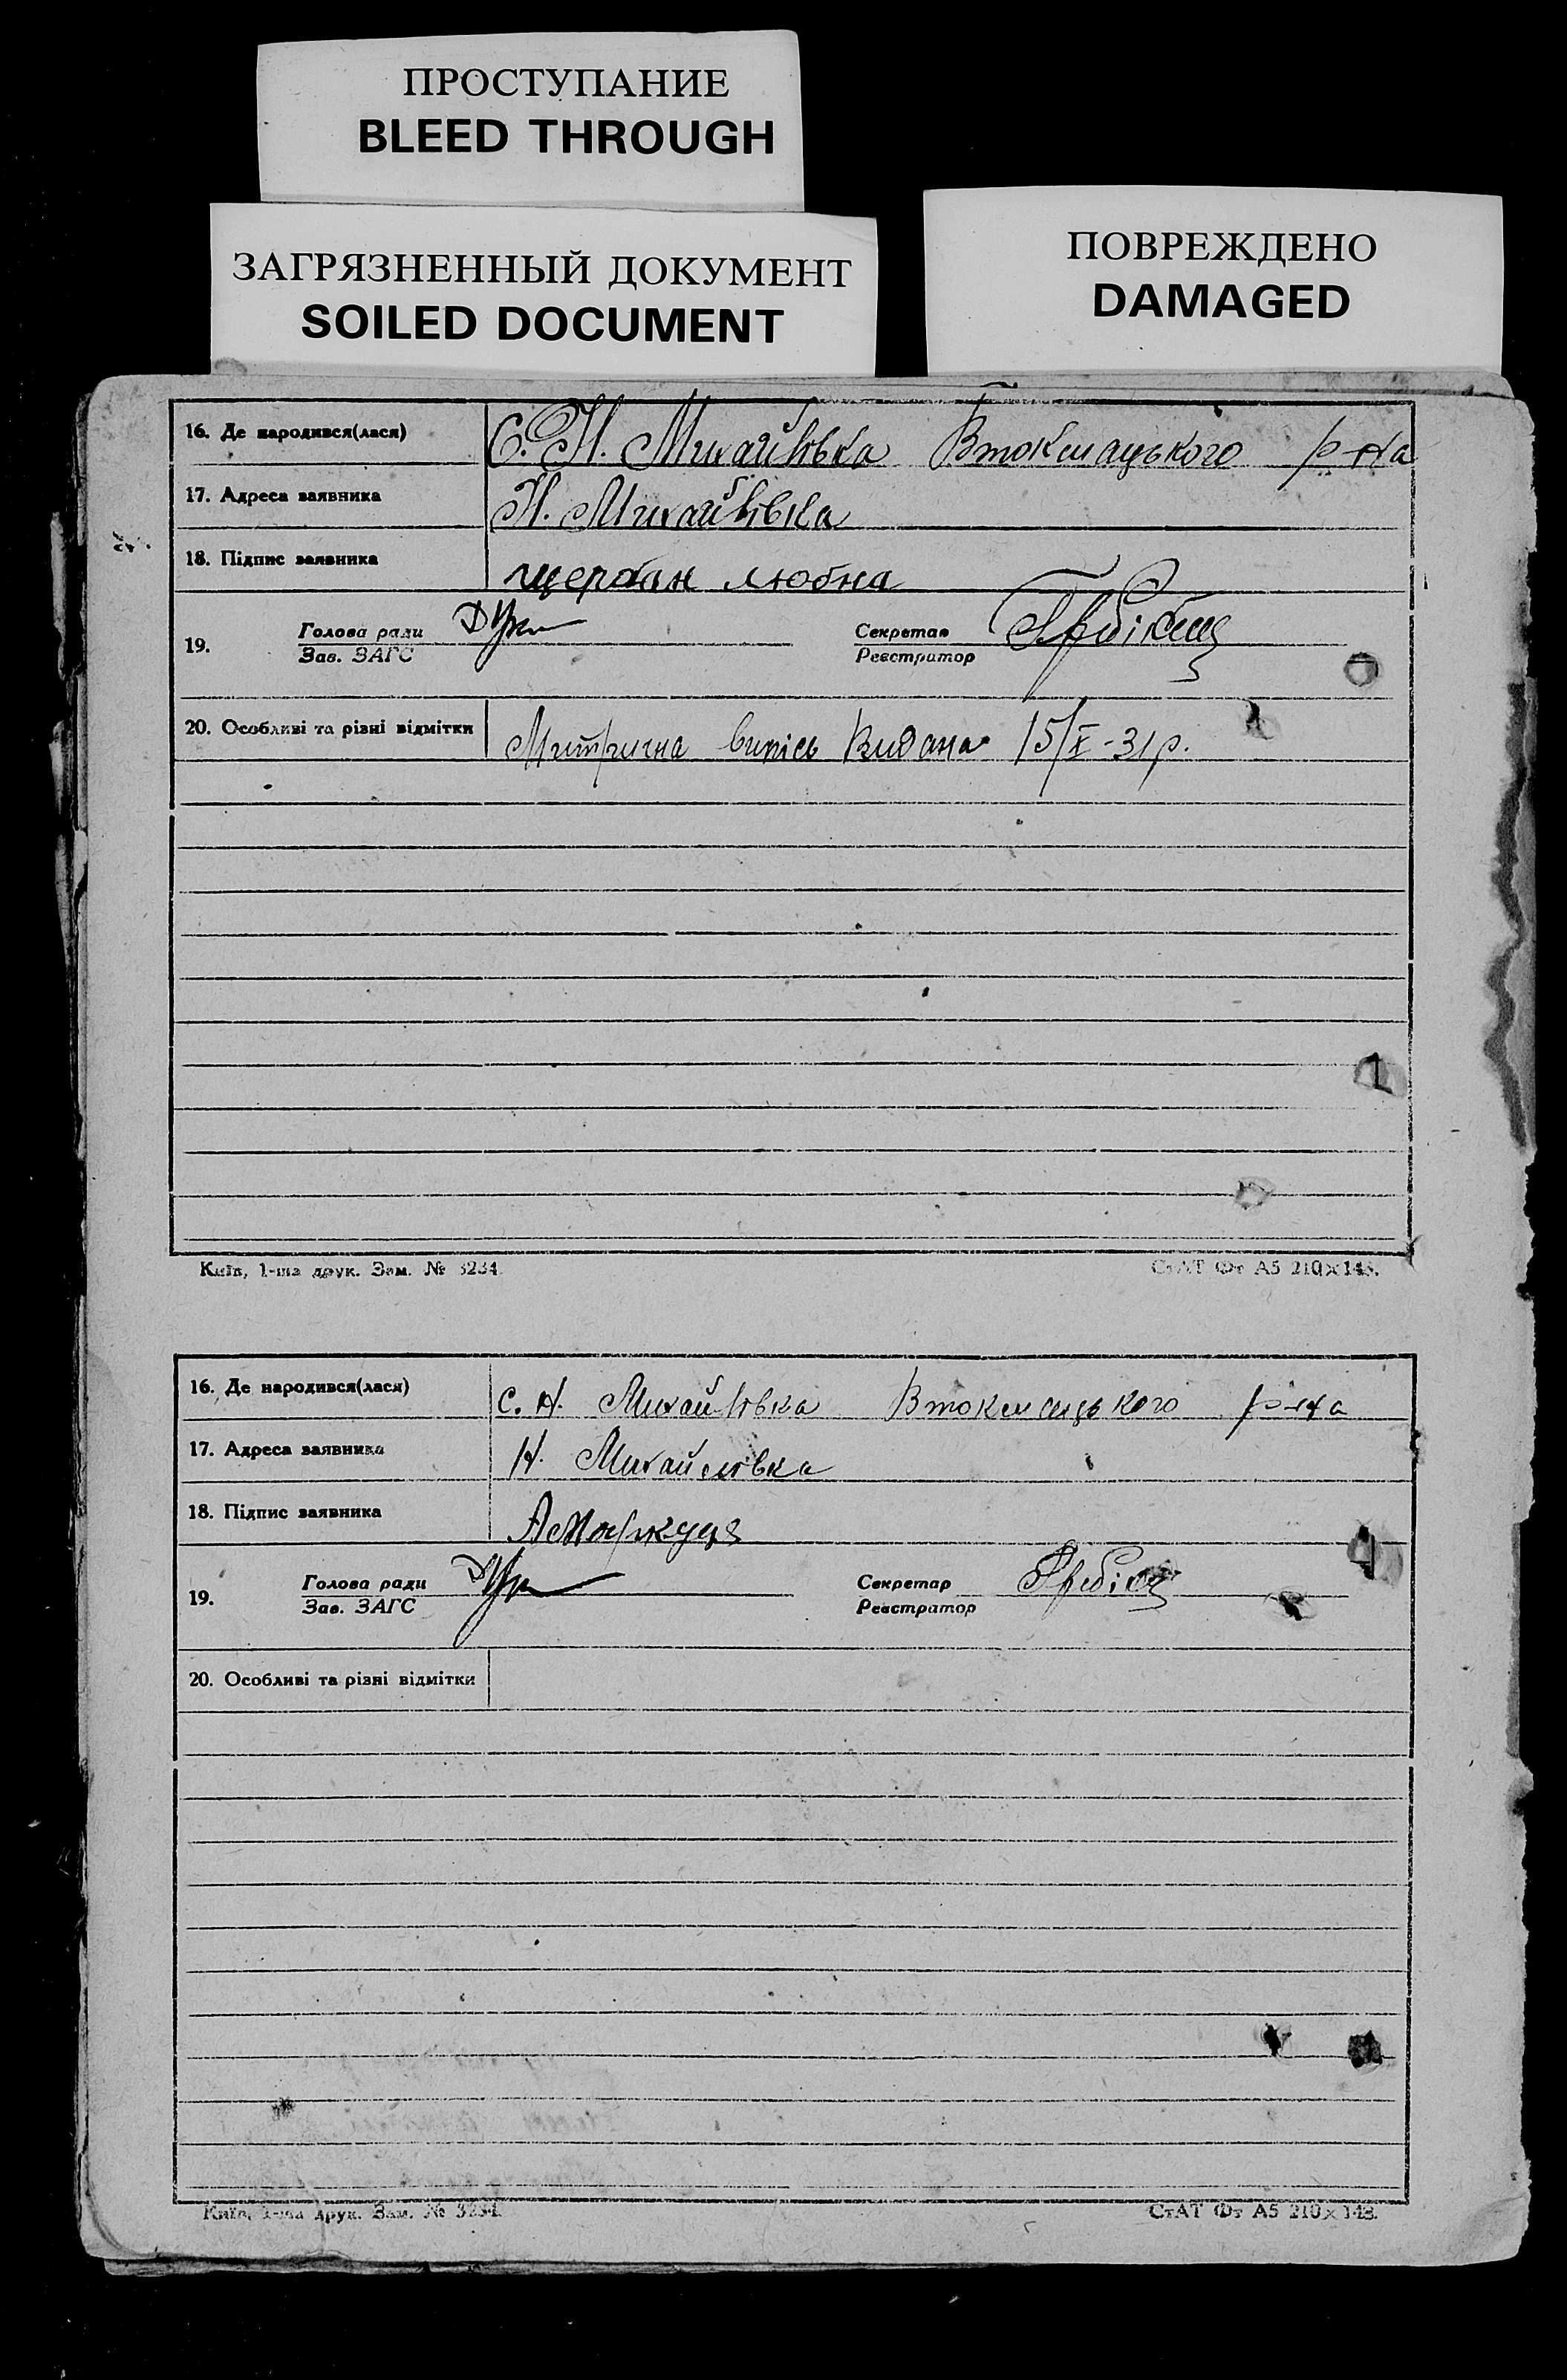 ПРОСТУПАНИЕ
BLEED THROUGH
ЗАГРЯЗНЕННЫЙ ДОКУМЕНТ
SOILED DOCUMENT
ПОВРЕЖДЕНО
DAMAGED
16. Де народився(лася) С. Н. Михайлівка Втокмацького р-на
17. Адреса заявника Н. Михайлівка
18. Підпис заявника щербан любна
19. Голова ради Секретар
Зав. ЗАГС Реєстратор
20. Особливі та різні відмітки Митрична випісь видана 15/X-31р.
Київ, 1-ша друк. Зам. № 3234. СтАТ Фт А5 210×148.
16. Де народився(лася) с. Н. Михайлівка Втокмацького р-на
17. Адреса заявника Н. Михайлівка
18. Підпис заявника
19. Голова ради Секретар
Зав. ЗАГС Реєстратор
20. Особливі та різні відмітки
Київ, 1-ша друк. Зам. № 3234. СтАТ Фт А5 210×148.